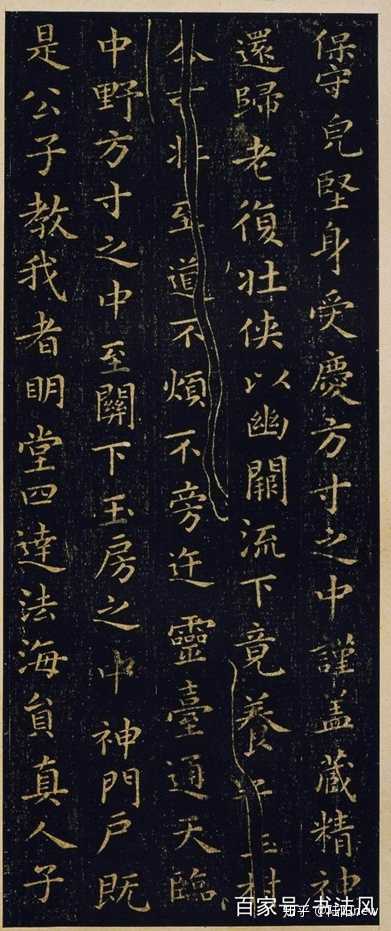 保守皃堅身受慶方寸之中謹盖藏精神
還歸老復壯侠以幽闕流下竟養子玉樹
令可杖至道不煩不旁迕靈臺通天臨
中野方寸之中至關下玉房之中神門戶既
是公子教我者明堂四達法海員真人子
百家号/书法风
知乎